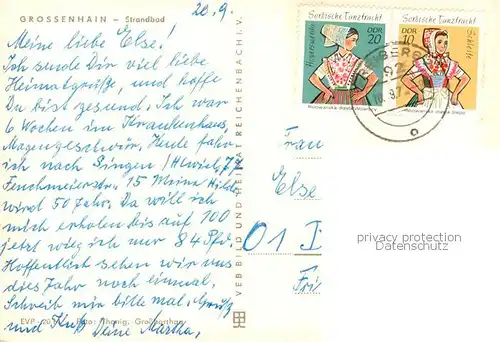 GROSSENHAIN – Strandbad
20.9.
Meine liebe Else!
Ich sende Dir viel liebe
Heimatgrüße, und hoffe
Du bist gesund. Ich war
6 Wochen im Krankenhaus,
Magengeschwür. Heute fahre
ich nach Singen
15 Meine Hilde
wird 50 Jahr. Da will ich
mich erholen bis auf 100
jetzt wieg ich nur 84 Pfd.
Hoffentlich sehen wir uns
dies Jahr noch einmal,
Schreib mir bitte mal, Gruß
und Kuß Deine Martha,
EVP
VEB BILD UND HEIMAT REICHENBACH I. V.
Sorbische Tanztracht
Hoyerswerda
20
DDR
Sorbische Tanztracht
Schleife
10
DDR
Frau
Else
privacy protection
postcards-collection.com